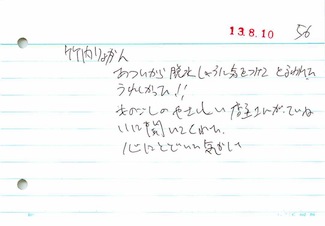 13.8.10
56
竹内りょかん
あついから脱水しょうに気をつけて と言われて
うれしかった!!
ものごしのやさしい店主さんが、ていね
いに聞いてくれた。
心にとどいた気がし